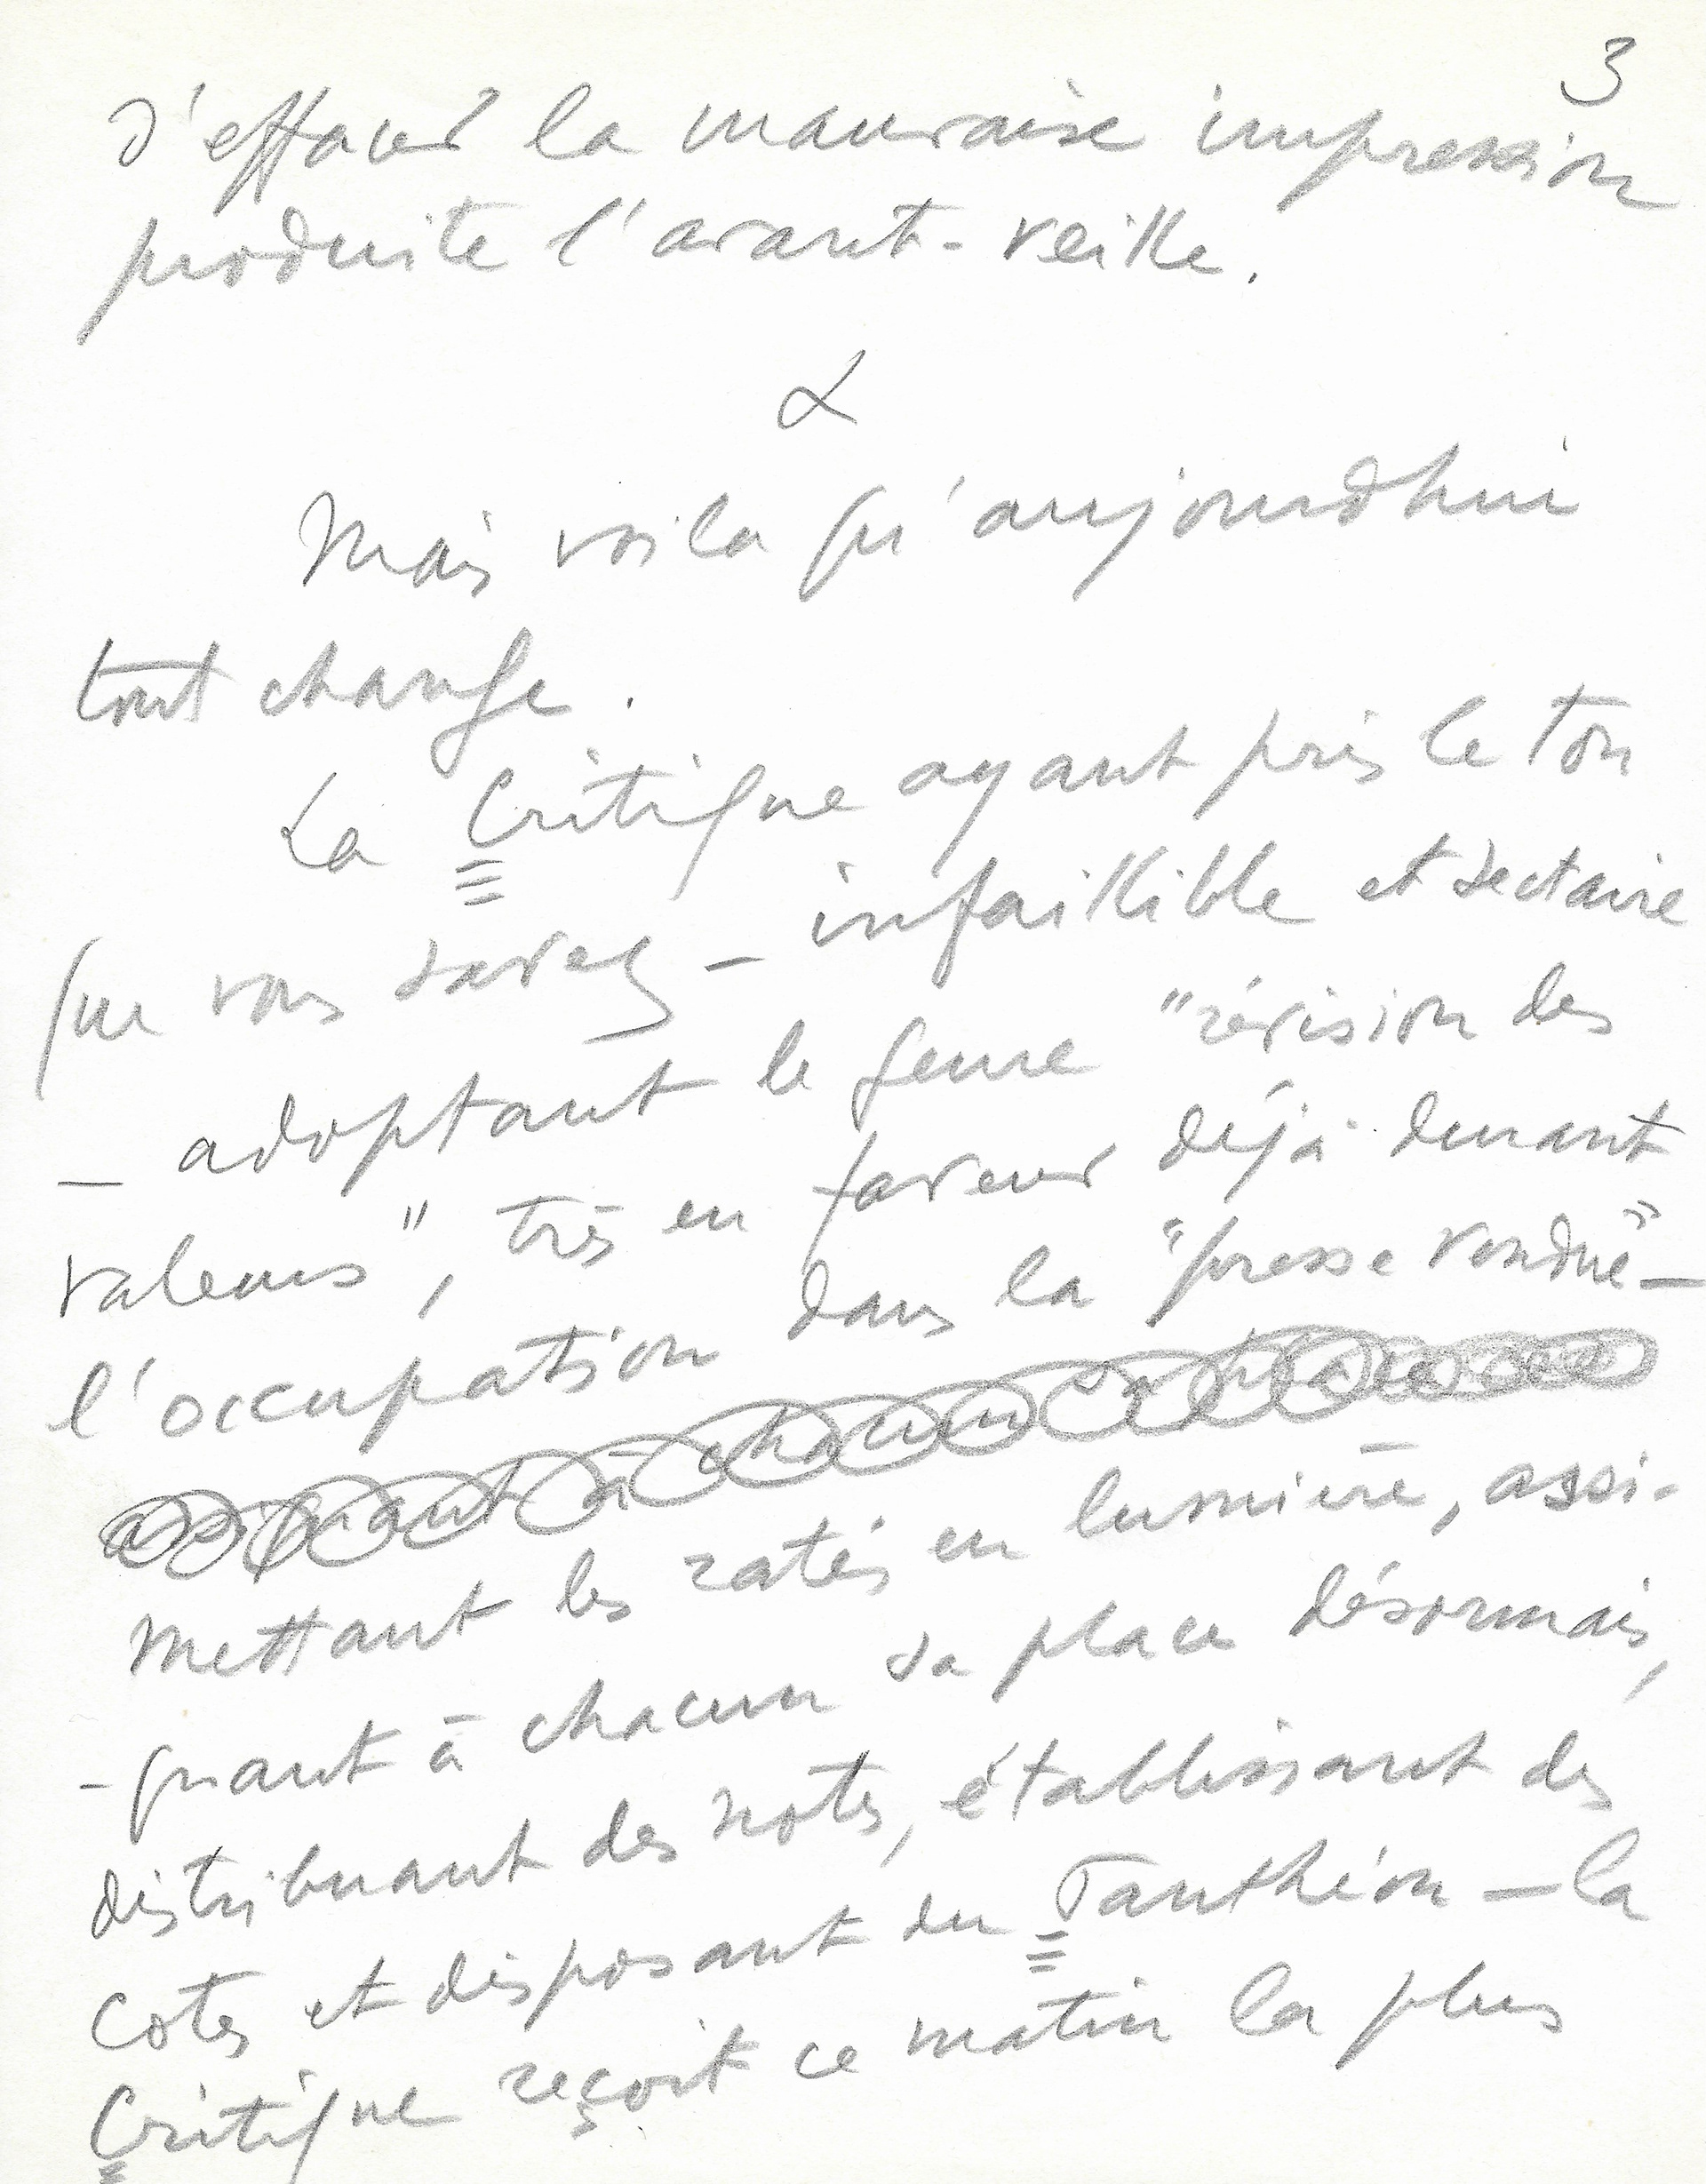 3
d'effacer la mauvaise impression
produite l'avant-veille.
Mais voila qu'aujourdhui
tout change.
La Critique ayant pris le ton
que vous savez – infaillible et sectaire
– adoptant le genre "révision des
valeurs", très en faveur déjà durant
l'occupation dans la "presse vendue" –
assignant à chacun sa place
Mettant les ratés en lumière, assi-
-gnant à chacun sa place désormais,
distribuant des notes, établissant des
cotes et disposant du Panthéon – la
Critique reçoit ce matin la plus